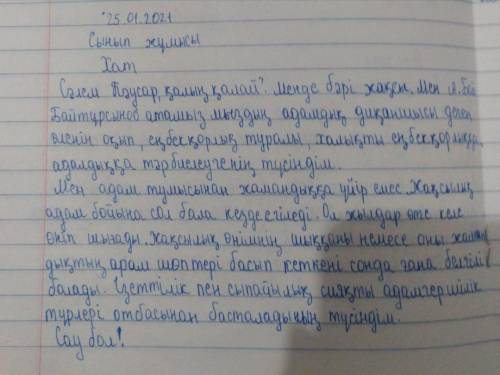 25.01.2021
Сынып жұмысы
Хат
Сәлем Кәусар, қалың қалай? Менде бәрі жақсы. Мен А.
Байтұрсынов атамыздың адамдық диқаншысы деген
өленін оқып, еңбекқорлық туралы, халықты еңбекқорлыққа,
адалдыққа тәрбиелеугенің түсіндім.
Мен адам тумысынан жамандыққа үйір емес. Жақсылық
адам бойына сол бала кезде егіледі. Ол жылдар өте келе
өніп шығады. Жақсылық өнімнің шыққаны немесе оны жаман
дықтың арам шөптері басып кеткені сонда ғана белгілі
болады. Әдептілік пен сыпайылық сияқты адамгершілік
түрлері отбасынан басталадының түсіндім.
Сау бол!